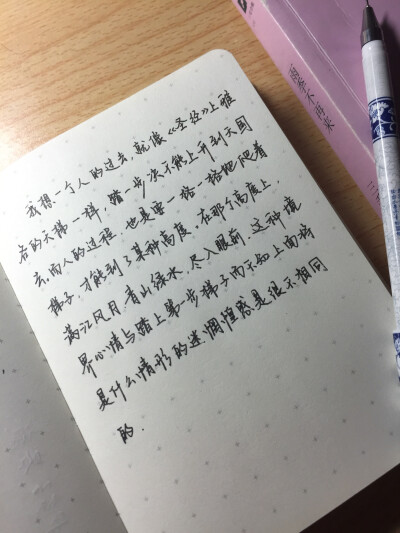 我想一个人的过去,就像《圣经》上雅
各的天梯一样,踏一步决不能上升到天国
去.而人的过程,也是要一格一格地爬着
梯子,才能到了某种高度,在那个高度上,
满江风月青山绿水,尽入眼前.这种境
界心情与踏上第一步梯子而不知上面将
是什么情形的迷惘惶惑是很不相同
的.
雨季不再来